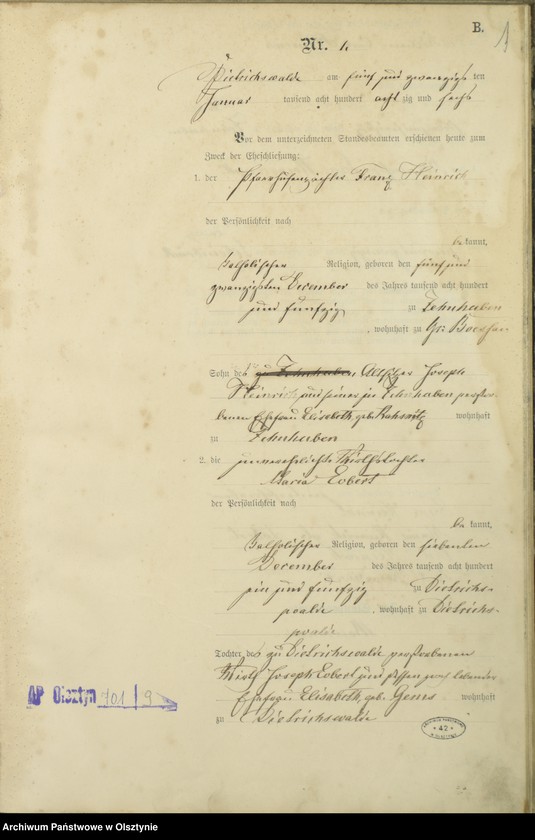 B.
1
Nr. 1.
Dietrichswalde am fünf und zwanzigs ten
Januar tausend acht hundert acht zig und sechs
Vor dem unterzeichneten Standesbeamten erschienen heute zum
Zweck der Eheschließung:
1. der Pfarrhufenpächter Franz Heinrich
der Persönlichkeit nach
be kannt,
katholischer Religion, geboren den fünf und
zwanzigsten December des Jahres tausend acht hundert
und fünfzig zu Zehnhuben
, wohnhaft zu Gr:
Sohn des Altsitzer Joseph
Heinrich und seiner zu Zehnhuben verstor-
benen Ehefrau Elisabeth, geb. wohnhaft
zu Zehnhuben
2. die unverehelichte Wirthstochter
Maria
der Persönlichkeit nach
be kannt,
katholischer Religion, geboren den siebenten
December des Jahres tausend acht hundert
und fünfzig zu Dietrichs-
walde , wohnhaft zu Dietrichs-
walde
Tochter des zu Dietrichswalde verstorbenen
Wirth Joseph und dessen noch lebender
Ehefrau Elisabeth, geb. wohnhaft
zu Dietrichswalde
AP Olsztyn 701/9
42
Archiwum Państwowe w Olsztynie